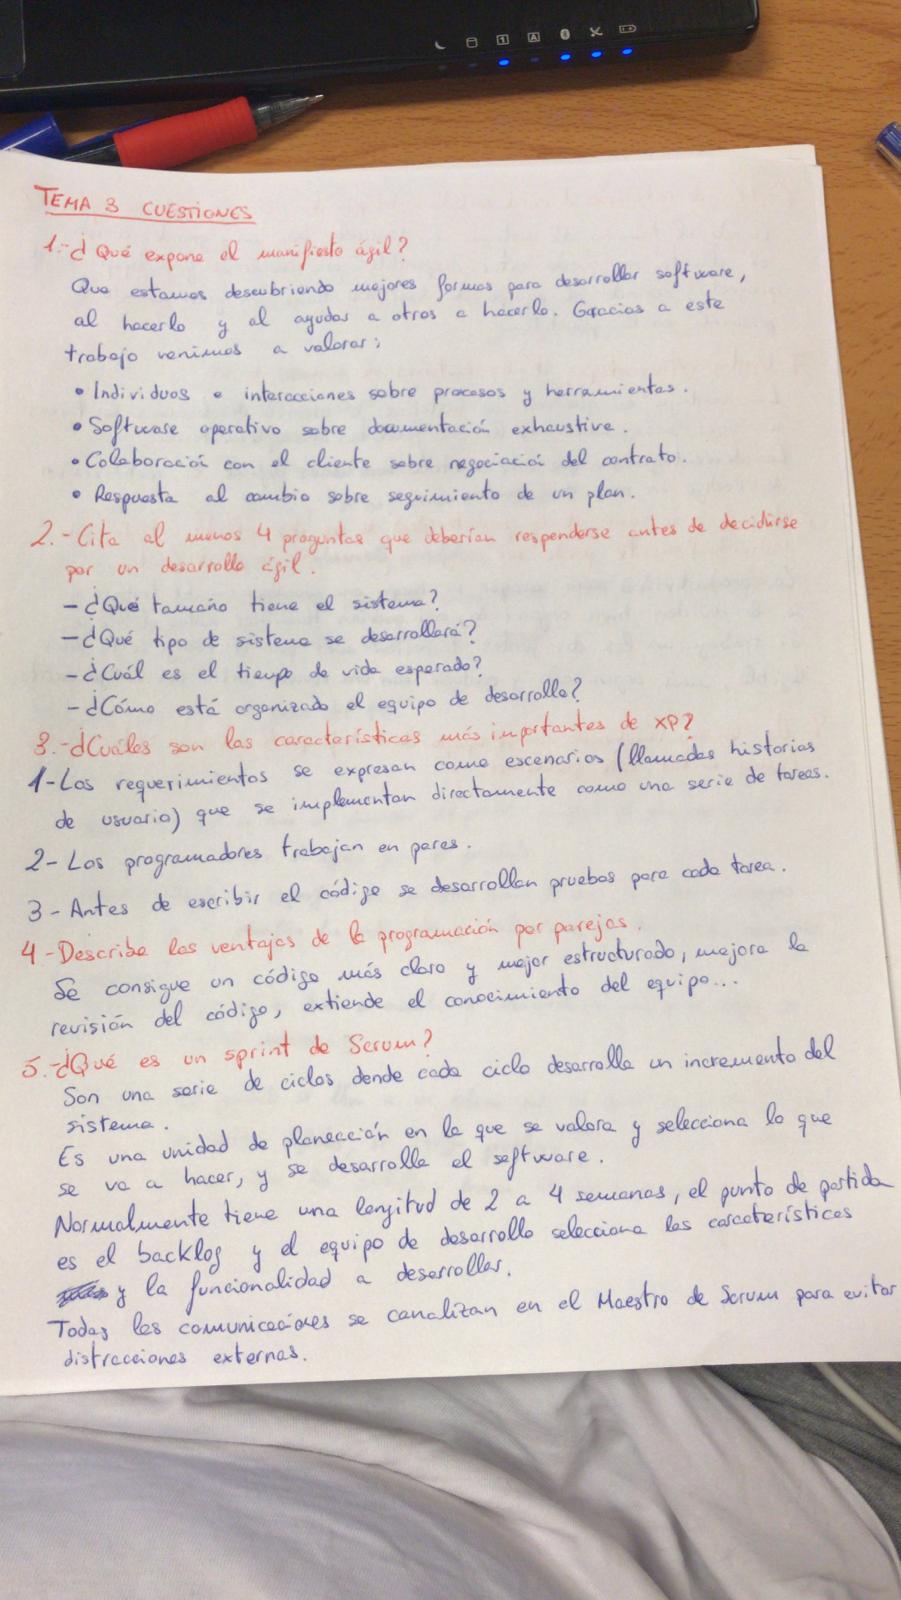 TEMA 3 CUESTIONES
1.-¿Qué expone el manifiesto ágil?
Que estamos descubriendo mejores formas para desarrollar software,
al hacerlo y al ayudar a otros a hacerlo. Gracias a este
trabajo venimos a valorar:
• Individuos e interacciones sobre procesos y herramientas.
• Software operativo sobre documentación exhaustiva.
• Colaboración con el cliente sobre negociación del contrato.
• Respuesta al cambio sobre seguimiento de un plan.
2.-Cita al menos 4 preguntas que deberían responderse antes de decidirse
por un desarrollo ágil.
-¿Qué tamaño tiene el sistema?
-¿Qué tipo de sistema se desarrollará?
-¿Cuál es el tiempo de vida esperado?
-¿Cómo está organizado el equipo de desarrollo?
3.-¿Cuáles son las características más importantes de XP?
1-Los requerimientos se expresan como escenarios (llamadas historias
de usuario) que se implementan directamente como una serie de tareas.
2-Los programadores trabajan en pares.
3-Antes de escribir el código se desarrollan pruebas para cada tarea.
4-Describe las ventajas de la programación por parejas.
Se consigue un código más claro y mejor estructurado, mejora la
revisión del código, extiende el conocimiento del equipo...
5.-¿Qué es un sprint de Scrum?
Son una serie de ciclos donde cada ciclo desarrolla un incremento del
sistema.
Es una unidad de planeación en la que se valora y selecciona lo que
se va a hacer, y se desarrolla el software.
Normalmente tiene una longitud de 2 a 4 semanas, el punto de partida
es el backlog y el equipo de desarrollo selecciona las características
y la funcionalidad a desarrollar.
Todas las comunicaciones se canalizan en el Maestro de Scrum para evitar
distracciones externas.